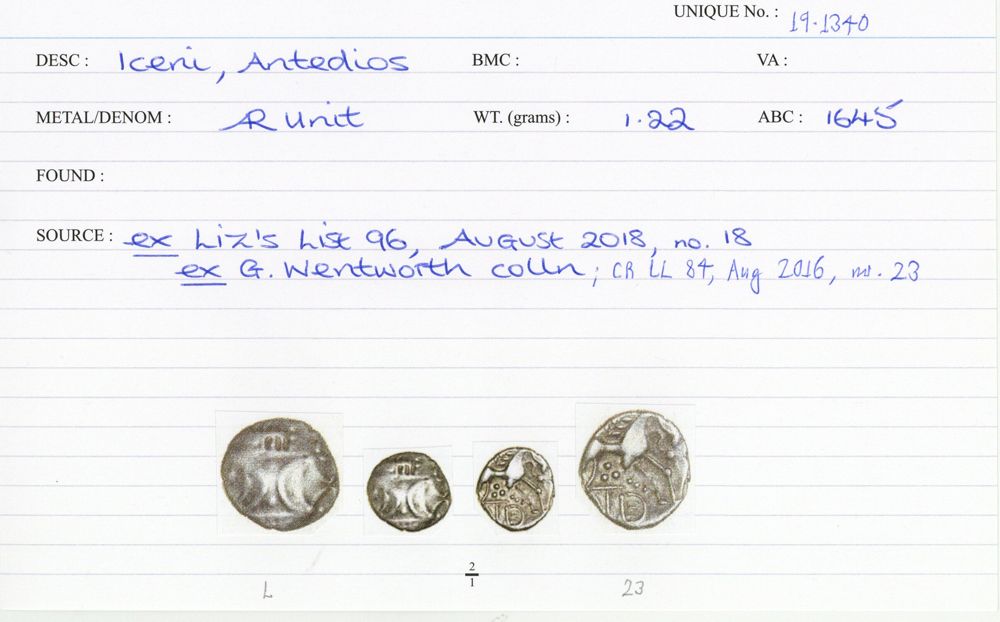 UNIQUE No. : 19·1340
DESC : Iceni, Antedios BMC : VA :
METAL/DENOM : AR Unit WT. (grams) : 1·22 ABC : 1645
FOUND :
SOURCE : ex Liz's List 96, AUGUST 2018, no. 18
ex G. Wentworth colln; CR LL 84, Aug 2016, no. 23
2
1
L 23